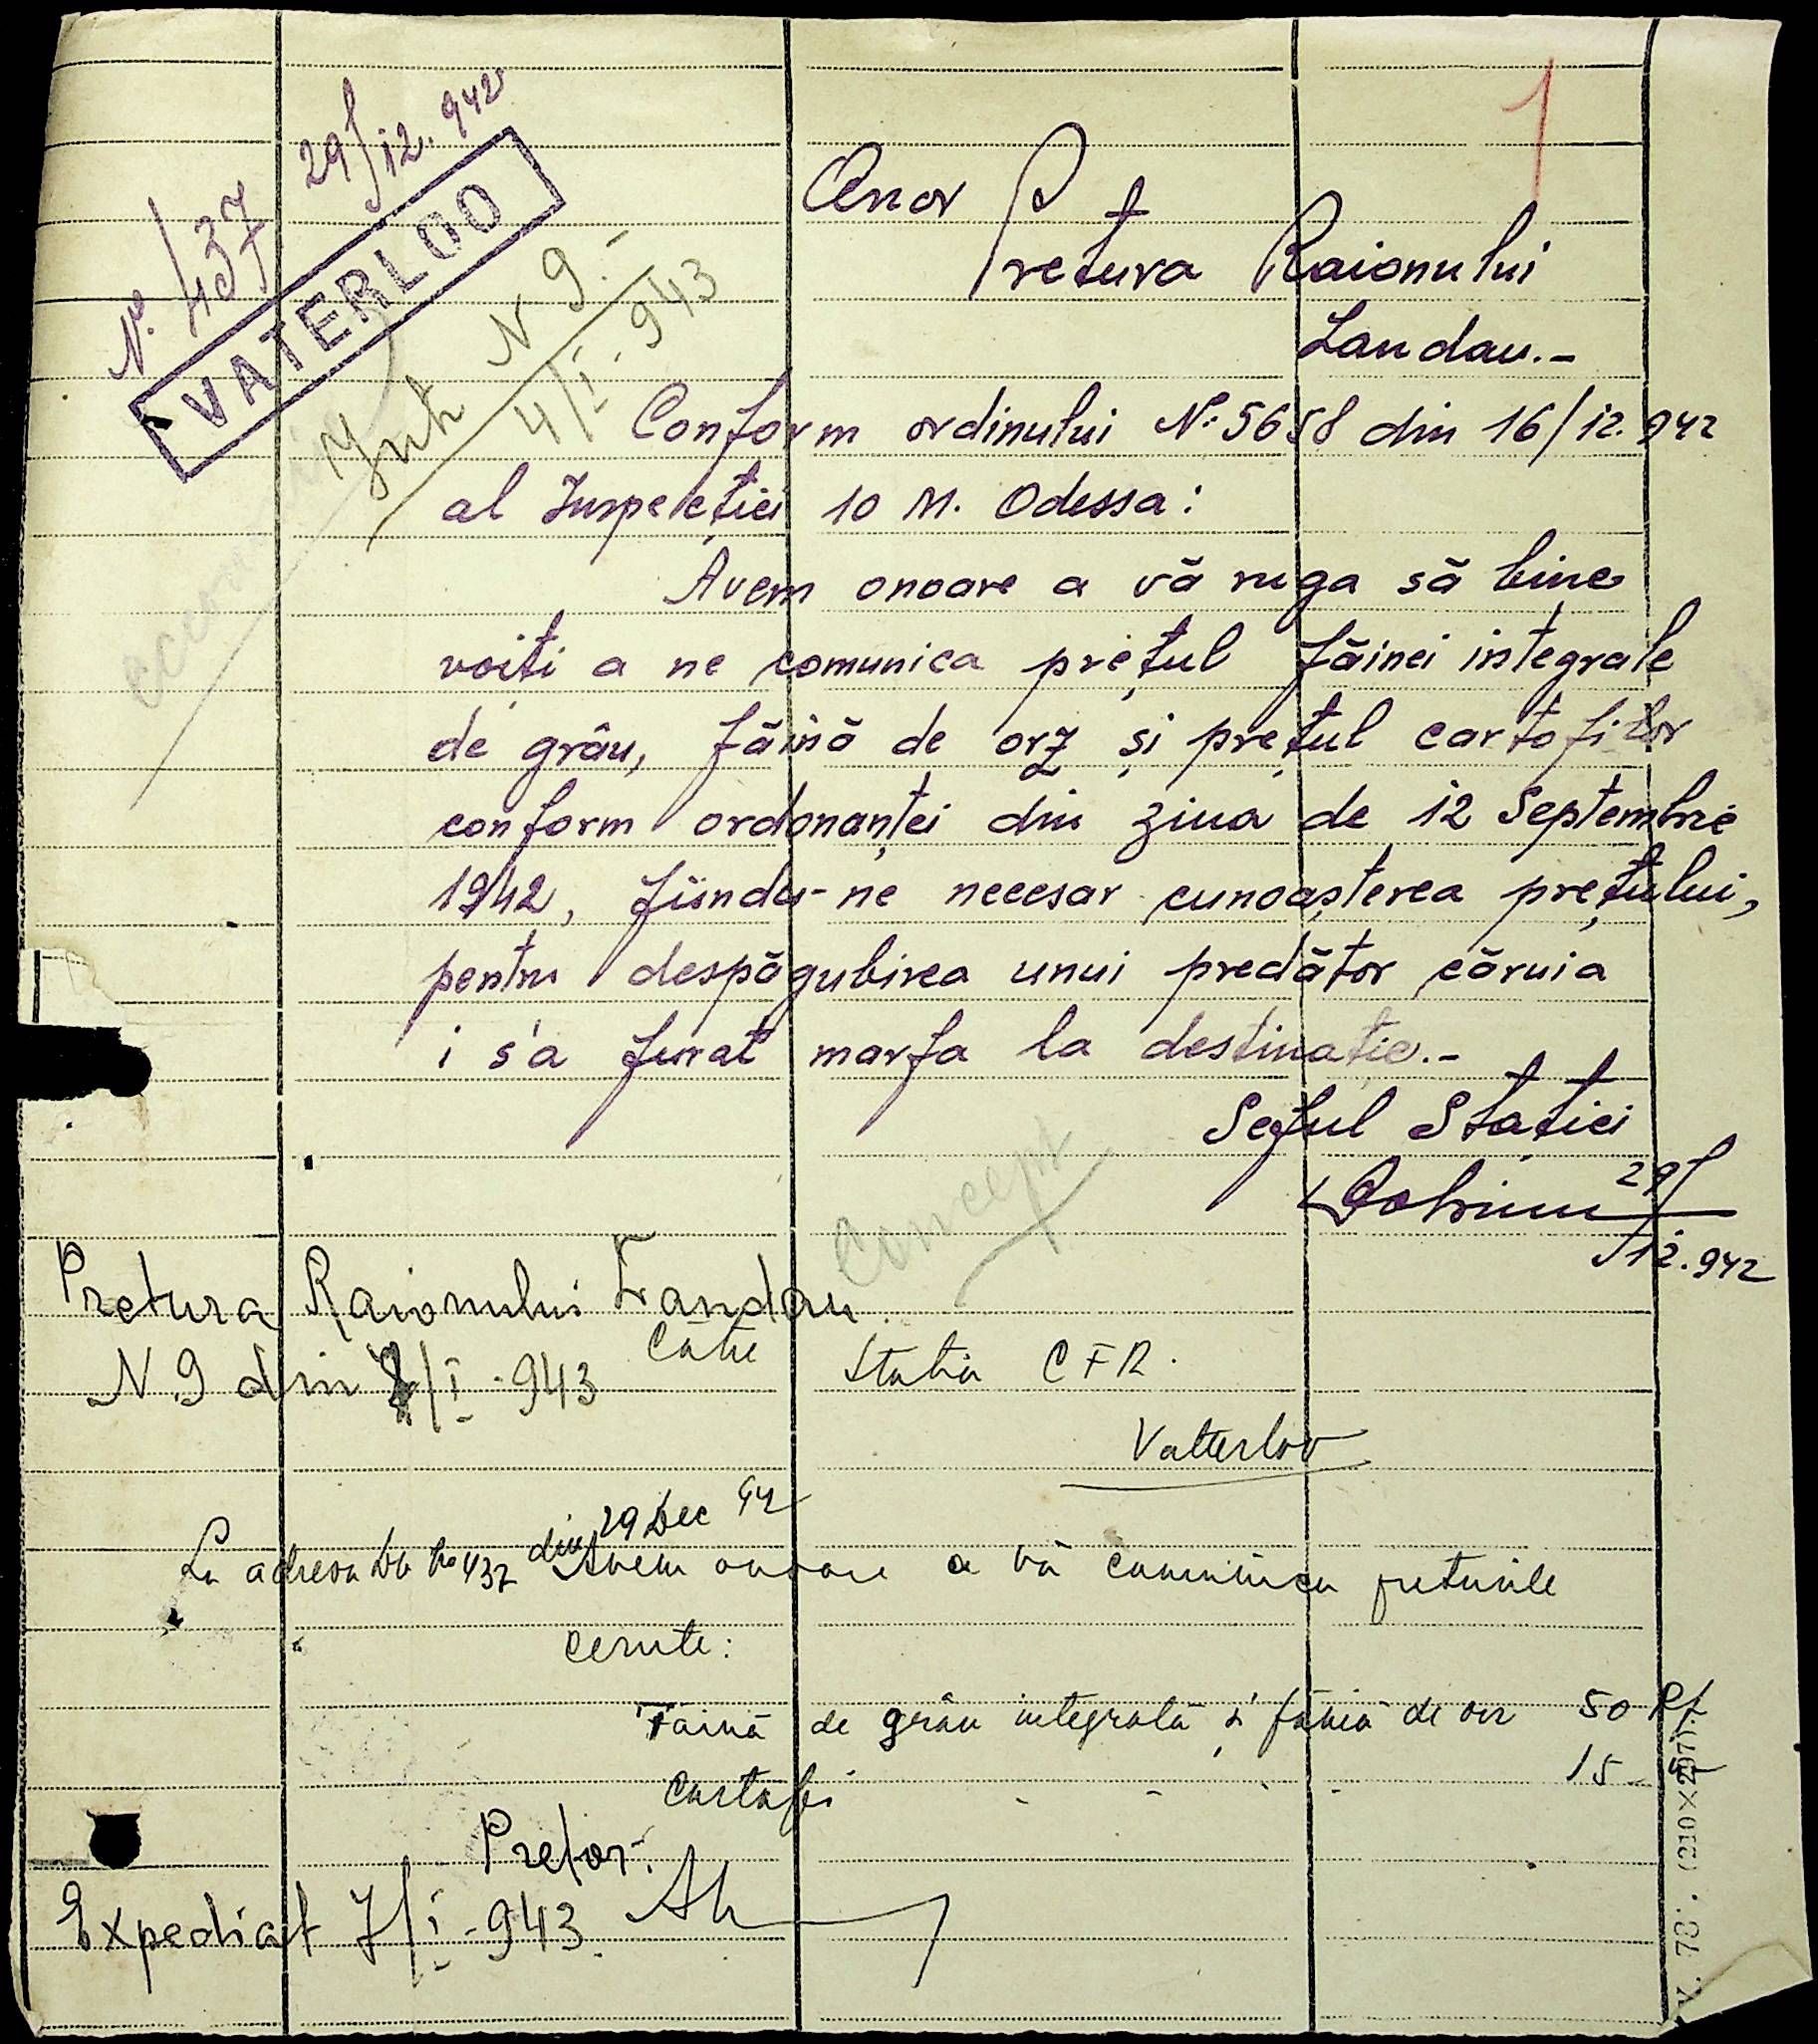 1
N: 437 29/12.942
VATERLOO
Onor Pretura Raionului
Landau.-
N 9.-
4/I.943
Conform ordinului N: 5658 din 16/12.942
al Inspecției 10 M. Odessa:
Avem onoare a vă ruga să bine
voiți a ne comunica prețul făinei integrale
de grâu, făină de orz și prețul cartofilor
conform ordonanței din ziua de 12 Septembrie
1942, fiindu-ne necesar cunoașterea prețului,
pentru despăgubirea unui predător căruia
i s'a furat marfa la destinație.-
Seful Stației
29/12.942
Concept
Pretura Raionului Landau
N 9 din /I.943
Către Statia CFR.
Vatterloo
La adresa Dv No 437 din 29 Dec 942 Avem onoare a vă comunica preturile
cerute:
Făină de grâu integrală și făină de orz 50 Rf
Cartofi - - - - 15 -
Pretor.
Expediat 7/I-943.
(210×297)